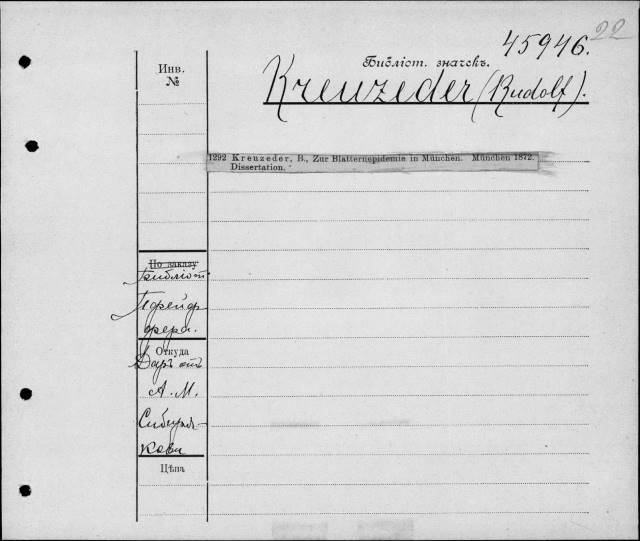 22
45946.
Библіот. значокъ.
Инв.
№
Kreuzeder (Rudolf).
1292 Kreuzeder, B., Zur Blatternepidemie in München. München 1872.
Dissertation.
По заказу
Библіот.
Пфейф-
фера.
Откуда
Даръ отъ
А. М.
Сибиря-
кова
Цѣна